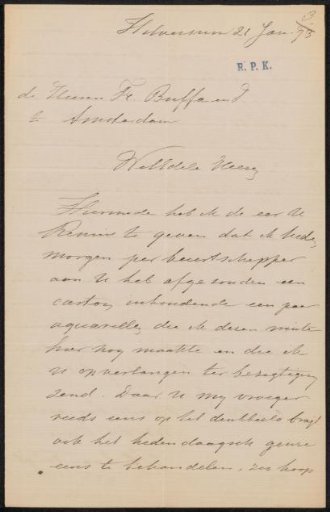 Hilversum 21 Jan 93
R. P. K.
de Heeren Fr. Buffa en
te Amsterdam
WelEdele Heeren
Hiermede heb ik de eer U
Kennis te geven dat ik heden
morgen per beurtschipper
aan U heb afgezonden een
carton, inhoudende een paar
aquarellen, die ik dezen winter
hier nog maakte en die ik
U op verlangen ter bezigtiging
zend. Daar U my vroeger
reeds eens op het denkbeeld bragt
ook het hedendaagsch genre
eens te behandelen, zoo hoop